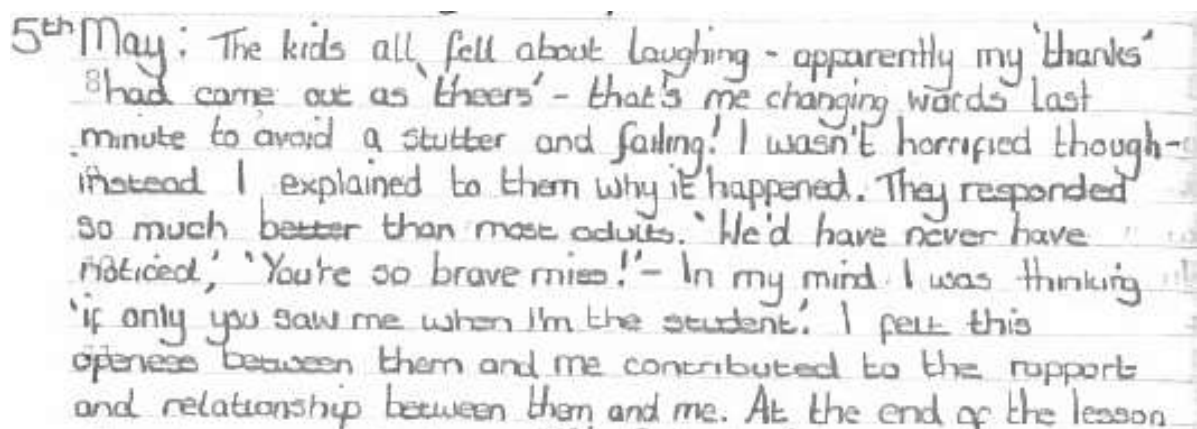 5th May: The kids all fell about laughing - apparently my 'thanks'
had come out as 'theers' - that's me changing words last
minute to avoid a stutter and failing! I wasn't horrified though-
instead I explained to them why it happened. They responded
so much better than most adults. 'We'd have never have
noticed,' 'You're so brave miss!' - In my mind I was thinking
'if only you saw me when I'm the student.' I felt this
openess between them and me contributed to the rapport
and relationship between them and me. At the end of the lesson